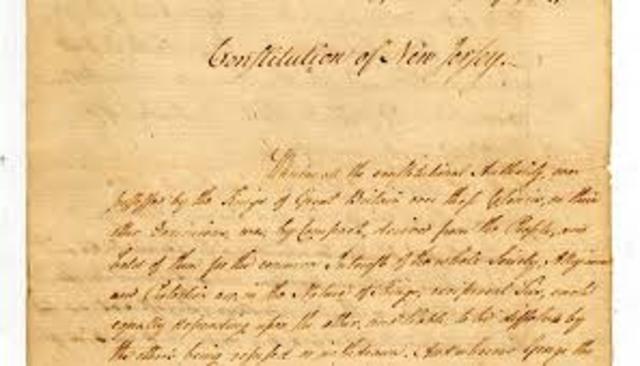 Constitution of New Jersey.
Whereas all the constitutional Authority, ever
possessed by the Kings of Great Britain over these Colonies, or their
other Dominions, was, by Compact, derived from the People, and
held of them for the common Interest of the whole Society, Allegiance
and Protection are, in the Nature of Things, reciprocal Ties, each
equally depending upon the other, and liable to be dissolved by
the others being refused or withdrawn. And whereas George the